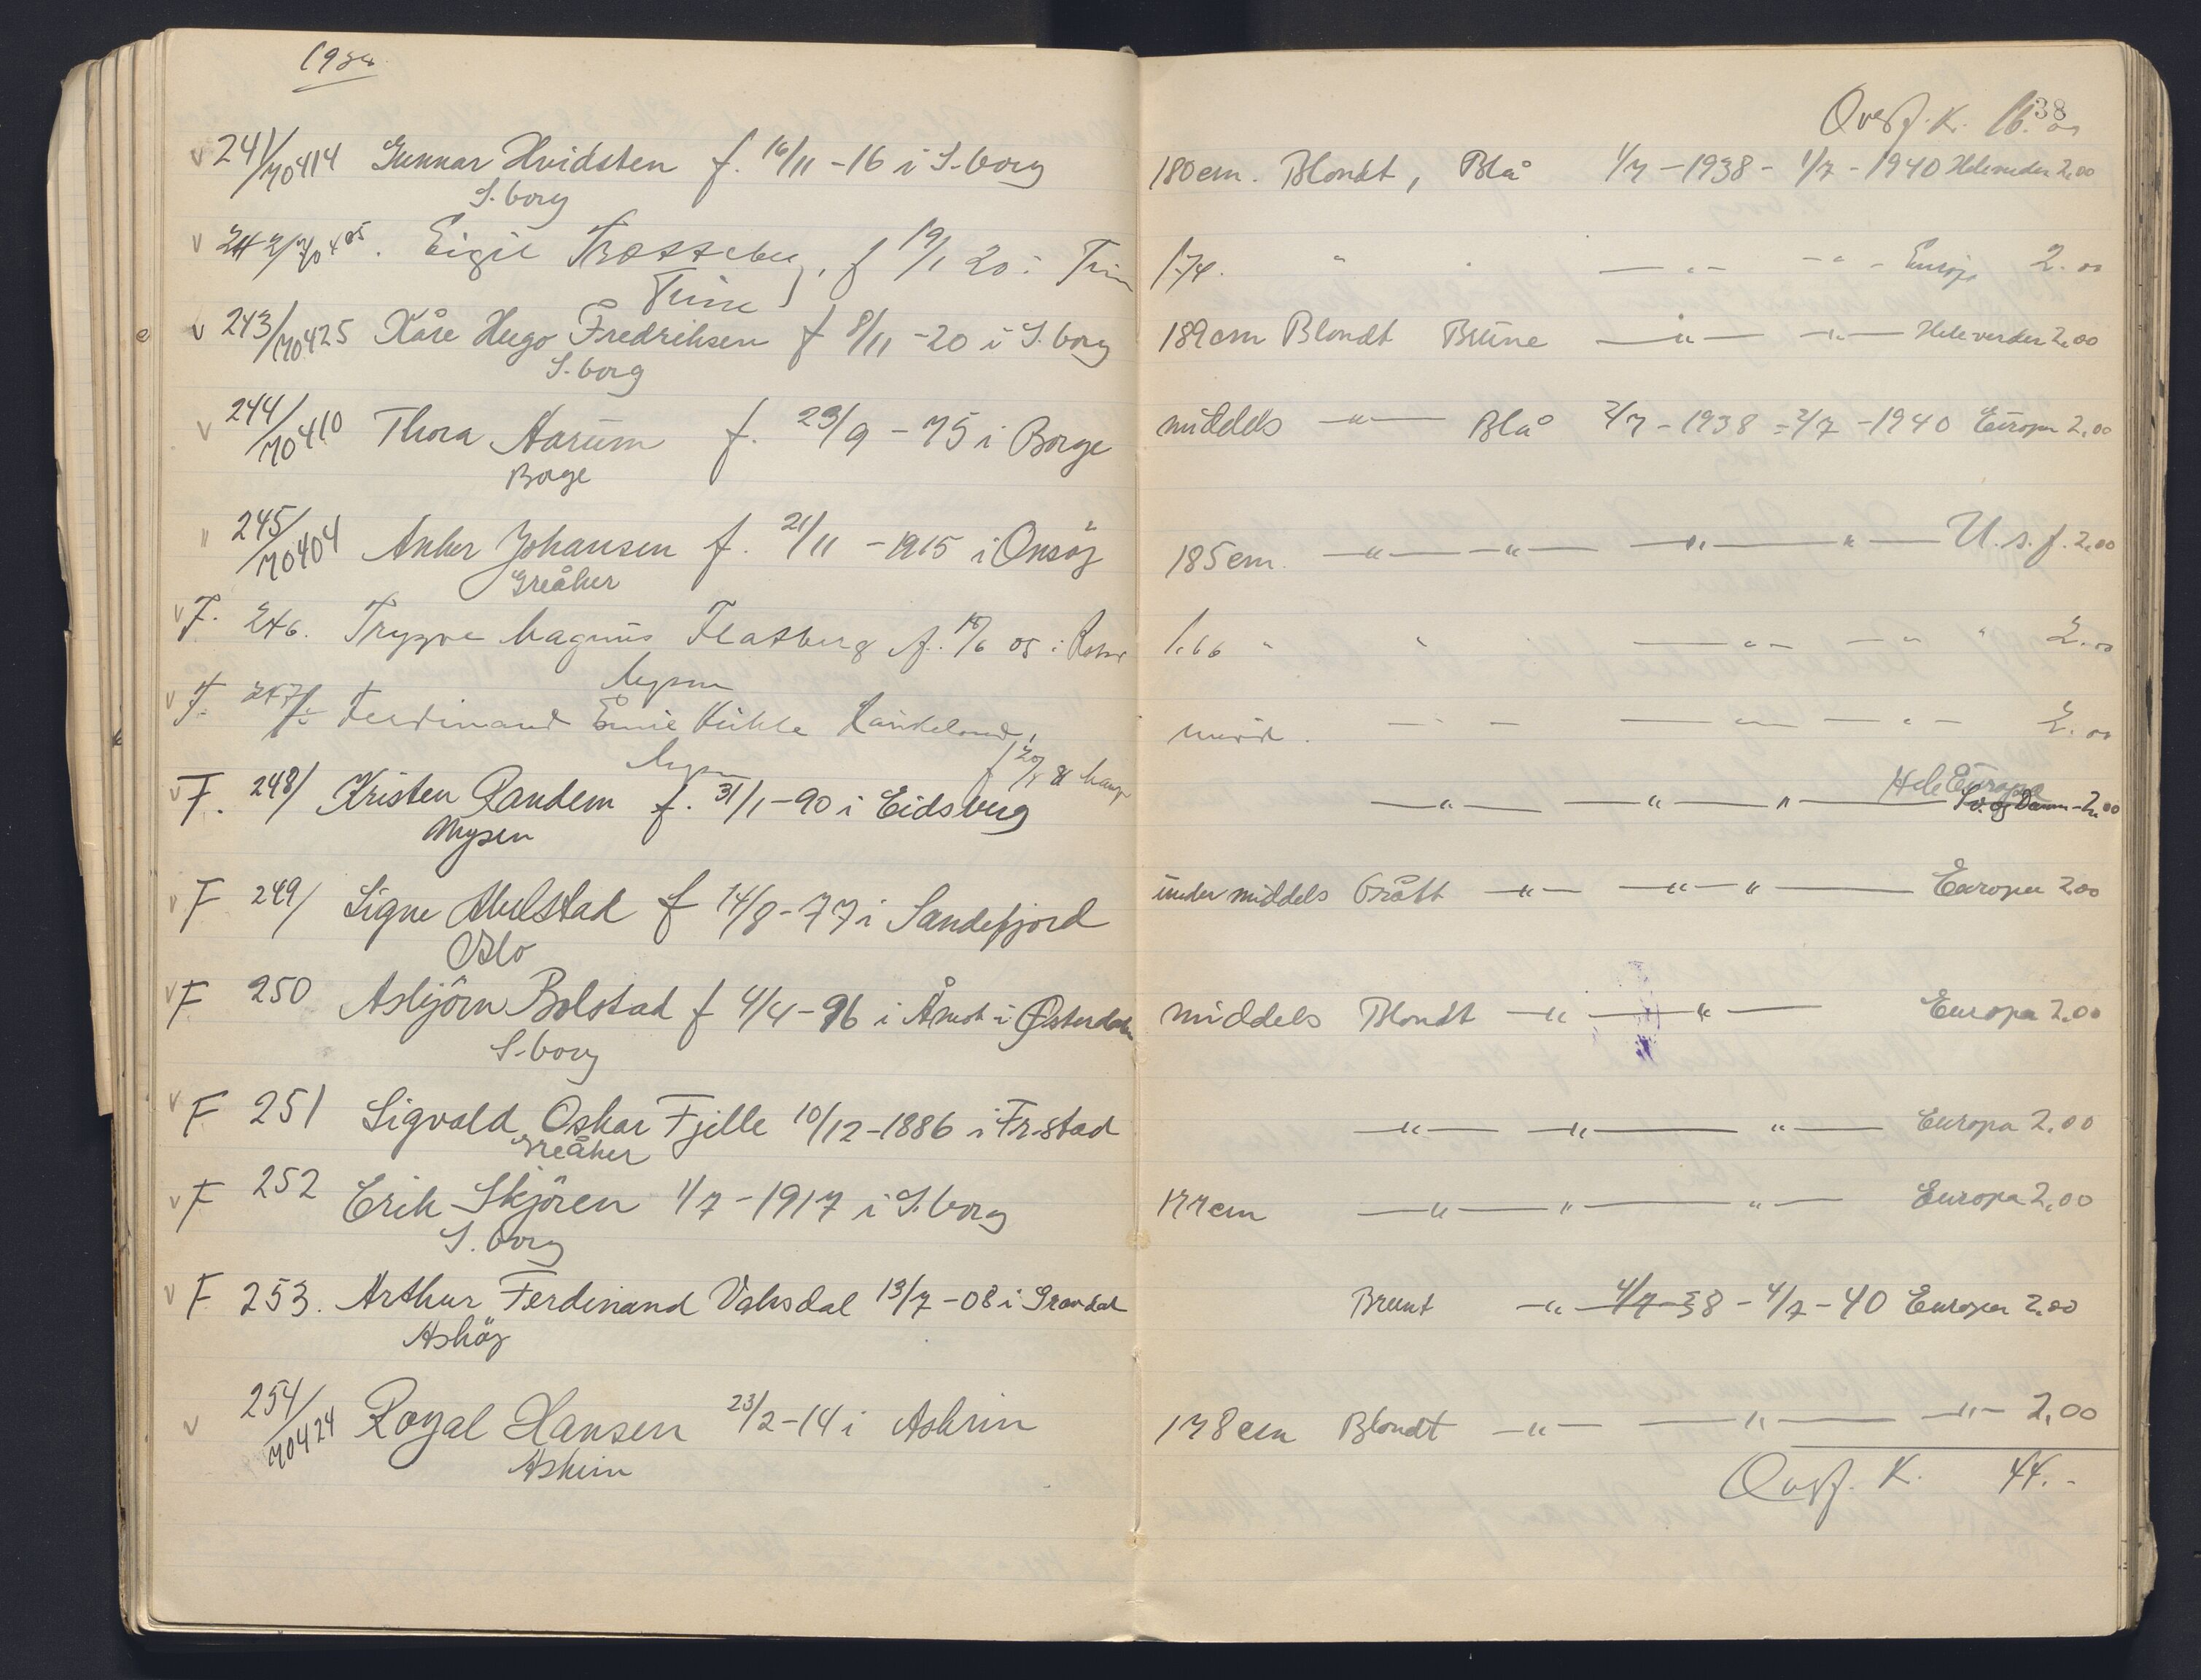 38
Overf. K. 16.00
241/70414 Gunnar Hvidsten f. 16/11 -16 i S-borg 180 cm. Blondt, Blå 1/7 -1938 - 1/7 -1940 Hele verden 2,00
S.borg
242/70405. Eigil f 19/1 20 i 174. " — " — — " — Europa 2.00
243/70425 Kåre Hugo Fredriksen f 8/11 -20 i S.borg 189 cm Blondt Brune — " — — " — Hele verden 2,00
S.borg
244/70410 Thora Aarum f. 23/9 -75 i Borge middels — " — Blå 2/7 -1938 - 2/7 -1940 Europa 2,00
Borge
245/70404 Anker Johansen f. 21/11 -1915 i Onsöy 185 cm. — " — " — — " — " — U.s.f. 2,00
Greåker
F. 246. Trygve Magnus Flatberg f. 05 i 1.66 " " — " — — " — " 2.00
Mysen
F. 247/ Ferdinand — " — — " — — " — 2.00
Mysen
F. 248/ Kristen Randem f. 31/1 -90 i Eidsberg — " — — " — " — Hele Europa Sv. og Danm. 2,00
Mysen
F 249/ Signe f 14/8 -77 i Sandefjord under middels Grått — " — — " — " — Europa 2,00
Oslo
F 250 Asbjörn Bolstad f 4/4 -96 i Åmot i Østerdalen middels Blondt — " — — " — Europa 2,00
S-borg
F 251 Sigvald Oskar Fjelle 10/12 -1886 i Fr-stad — " — — " — " — Europa 2,00
Greåker
F 252 Erik Skjören 1/7 -1917 i S.borg 177 cm — " — " — " — Europa 2,00
S.borg
F 253. Arthur Ferdinand Vaksdal 13/7 -08 i Brunt — " — 4/7 -38 - 4/7 -40 Europa 2,00
Asköy
254/70424 Royal Hansen 23/2 -14 i Askim 178 cm Blondt — " — — " — — " — 2,00
Askim
Overf. K. 44.-